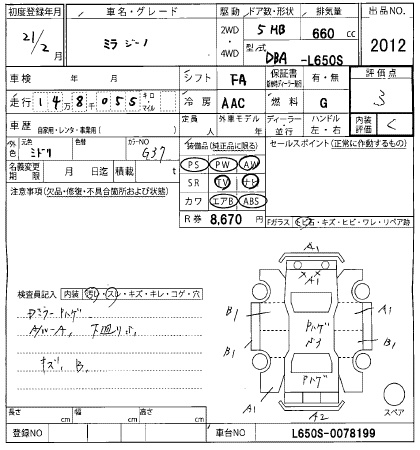 初度登録年月 車名・グレード 駆動 ドア数・形状 排気量 出品NO.
21/2月 ミラ ジーノ 2WD・4WD 5 HB 660 cc 2012
型式 DBA-L650S
車検 年 月 シフト FA 保証書 有・無 評価点
走行 14万8千055 キロ・マイル 冷房 AAC 燃料 G 3
車歴 自家用・レンタ・事業用( ) 定員 人 外車モデル 年 ディーラー・並行 ハンドル 左・右 内装評価 C
外色 元色 ミドリ 色替 カラーNO G37 装備品(純正品に限る) セールスポイント(正常に作動するもの)
名義変更期限 月 日迄 積載 t PS PW AW
注意事項(欠品・修復・不具合箇所および状態) SR TV ナビ
カワ エアB ABS
R券 8,670 円
Fガラス トビ石・キズ・ヒビ・ワレ・リペア跡
A1
A1
検査員記入 内装 汚れ・スレ・キズ・キレ・コゲ・穴
B1 A1
ハゲ
B1 B1
キズ、B、
ハゲ
A1 A1
A2
スペア
長さ cm 幅 cm 高さ cm
登録NO 車台NO L650S-0078199